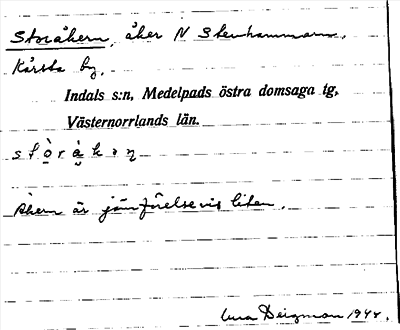 Storåkern, åker N Stenhammaren,
Kårsta by,
Indals s:n, Medelpads östra domsaga tg,
Västernorrlands län.
stò̱rà̱kəṇ
Åkern är jämförelsevis liten.
Deigman 194